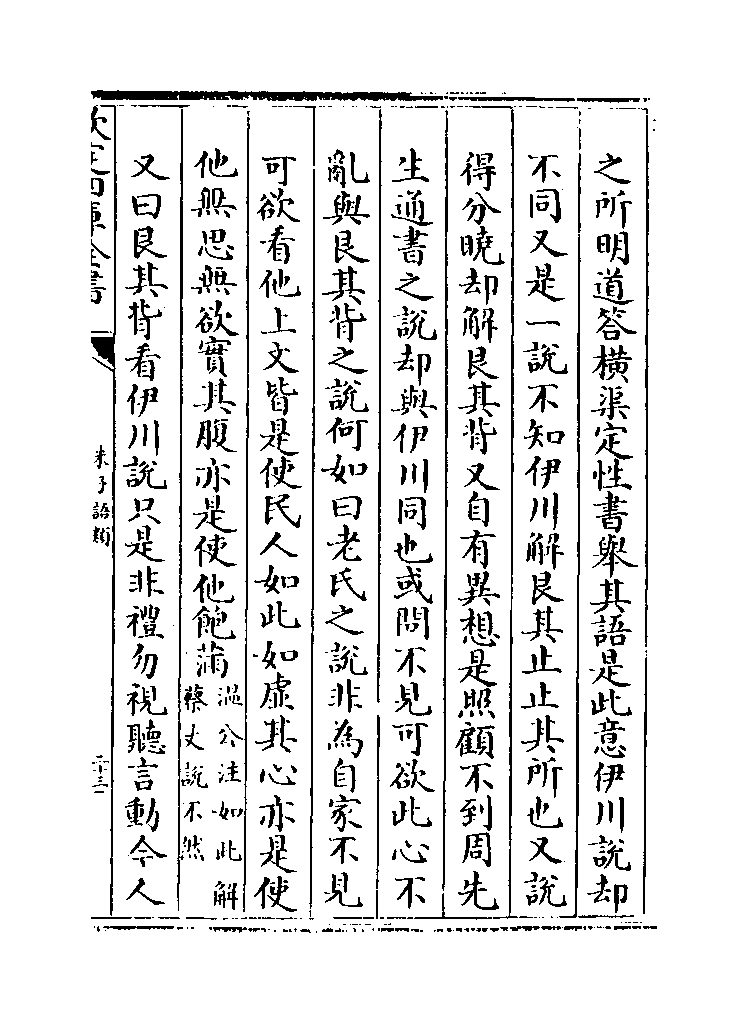 之所明道答橫渠定性書舉其語是此意伊川說却
不同又是一說不知伊川解艮其止止其所也又說
得分曉却解艮其背又自有異想是照顧不到周先
生通書之說却與伊川同也或問不見可欲此心不
亂與艮其背之說何如曰老氏之說非為自家不見
可欲看他上文皆是使民人如此如虛其心亦是使
他無思無欲實其腹亦是使他飽滿
温公注如此解
蔡丈說不然
又曰艮其背看伊川說只是非禮勿視聽言動今人
欽定四庫全書
朱子語類
二十三